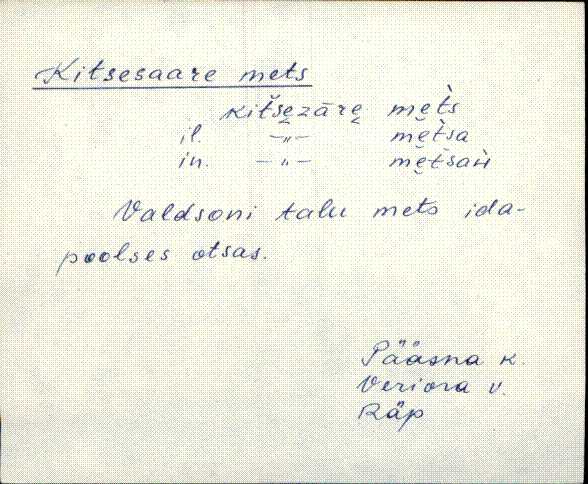 Kitsesaare mets
kitšezāre mèts
il. —„— mètsa
in. —„— mètšaǹ
Valdsoni talu mets ida-
poolses otsas.
Pääsna k.
Veriora v.
Räp